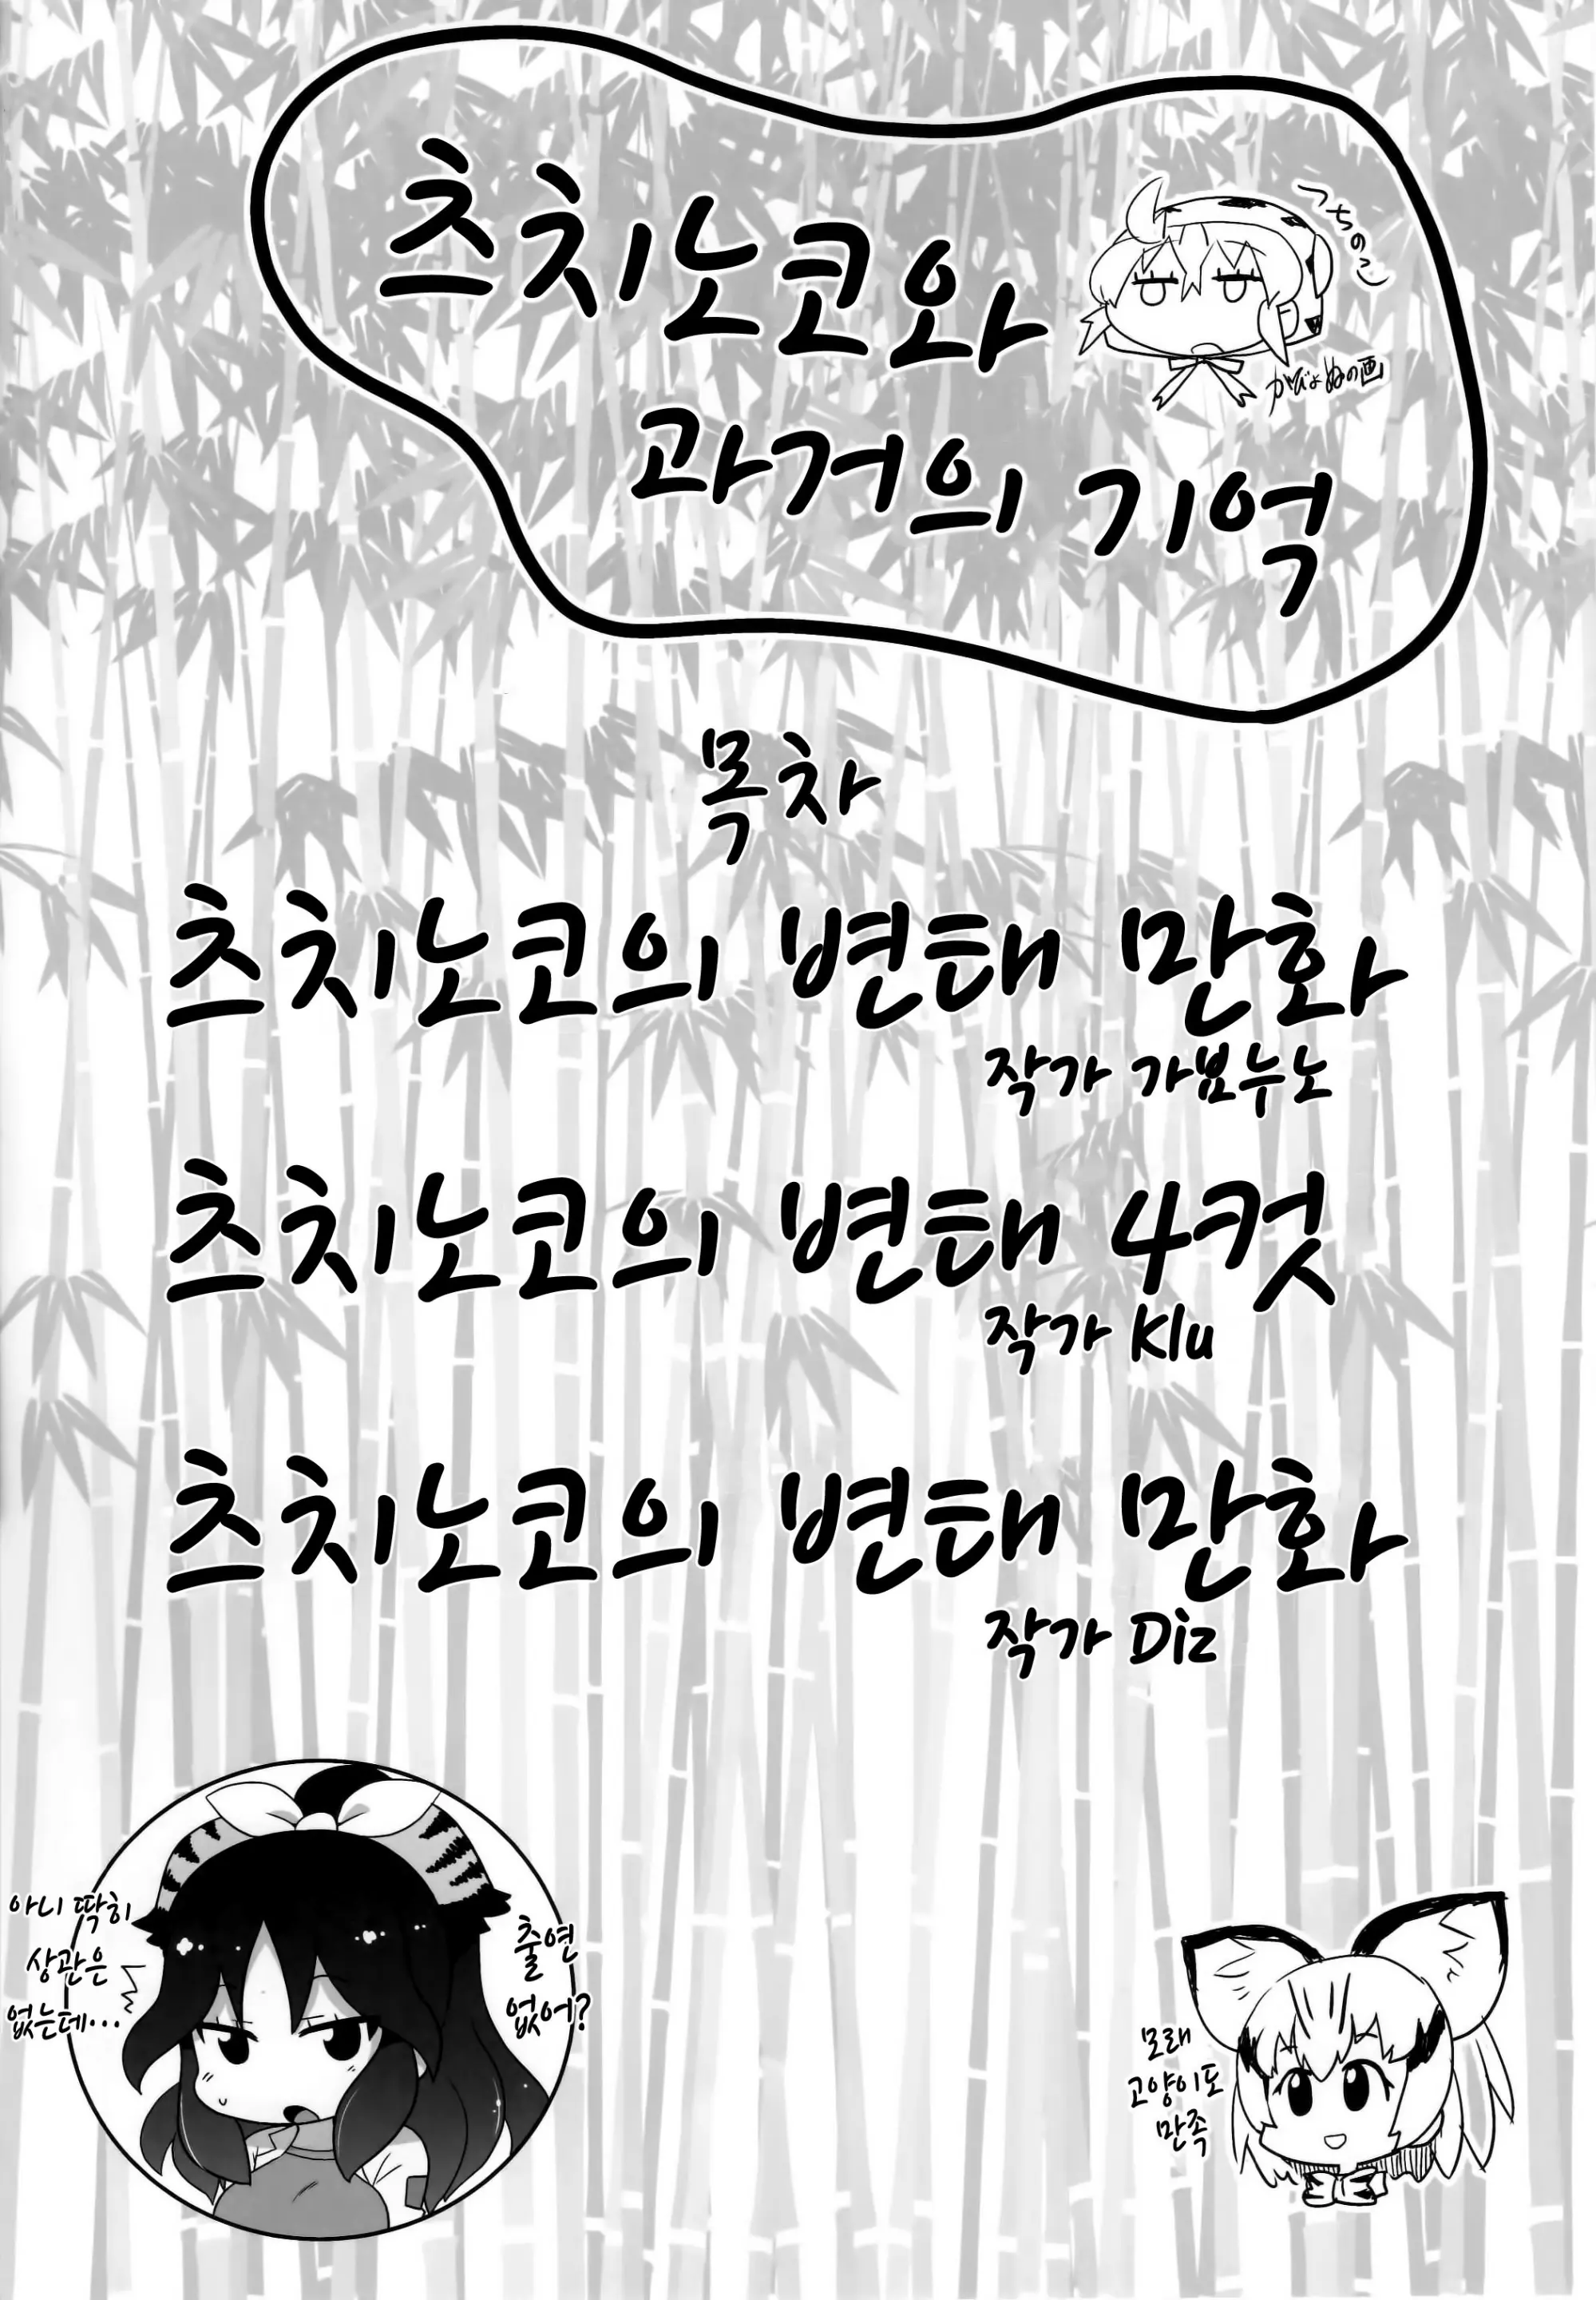 츠치노코와
つちのこ
がびょぬの画
과거의 기억
목차
츠치노코의 변태 만화
작가 가뵤누노
츠치노코의 변태 4컷
작가 Klu
츠치노코의 변태 만화
작가 Diz
아니 딱히
상관은
없는데...
출연
없어?
모래
고양이도
만족